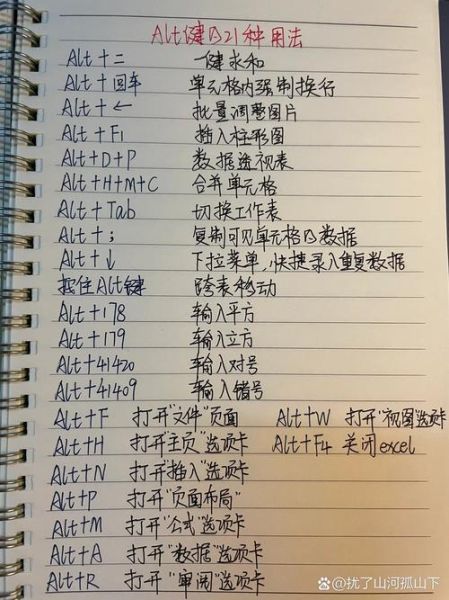 Alt键的21种用法
Alt+= 一键求和
Alt+回车 单元格内强制换行
Alt+← 批量调整图片
Alt+F1 插入柱形图
Alt+D+P 数据透视表
Alt+H+M+C 合并单元格
Alt+Tab 切换工作表
Alt+; 复制可见单元格的数据
Alt+↓ 下拉菜单,快捷录入重复数据
按住Alt键 跨表移动
Alt+178 输入平方
Alt+179 输入立方
Alt+41420 输入对号
Alt+41409 输入错号
Alt+F 打开"文件"页面 Alt+W 打开"视图"选项卡
Alt+H 打开"主页"选项卡 Alt+F4 关闭excel
Alt+N 打开"插入"选项卡
Alt+P 打开"页面布局"
Alt+M 打开"公式"选项卡
Alt+A 打开"数据"选项卡
Alt+R 打开"审阅"选项卡
@扰了山河孤山下